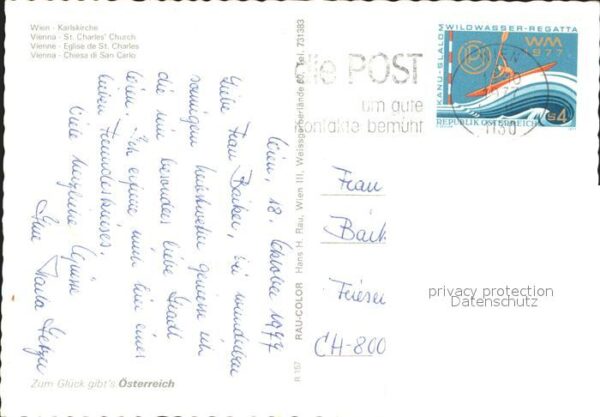 Wien - Karlskirche
Vienna - St. Charles' Church
Vienne - Eglise de St. Charles
Vienna - Chiesa di San Carlo
Wien, 18. Oktober 1977
Liebe Frau Baiker, bei wunderbar
sonnigem genieße ich
die mir besonders liebe Stadt
Wien. Ich erfreue mich hier eines
lieben Freundeskreises.
Viele herzliche Grüsse
Ihre
Zum Glück gibt's Österreich
R 157 RAU-COLOR Hans H. Rau, Wien III, Weissgerberlände 60, Tel. 731383
die POST
um gute
Kontakte bemüht
WIEN
1150
KANU-SLALOM WILDWASSER-REGATTA
WM
1977
S4
REPUBLIK ÖSTERREICH
Frau
Baik
Friesen
CH-800
privacy protection
Datenschutz